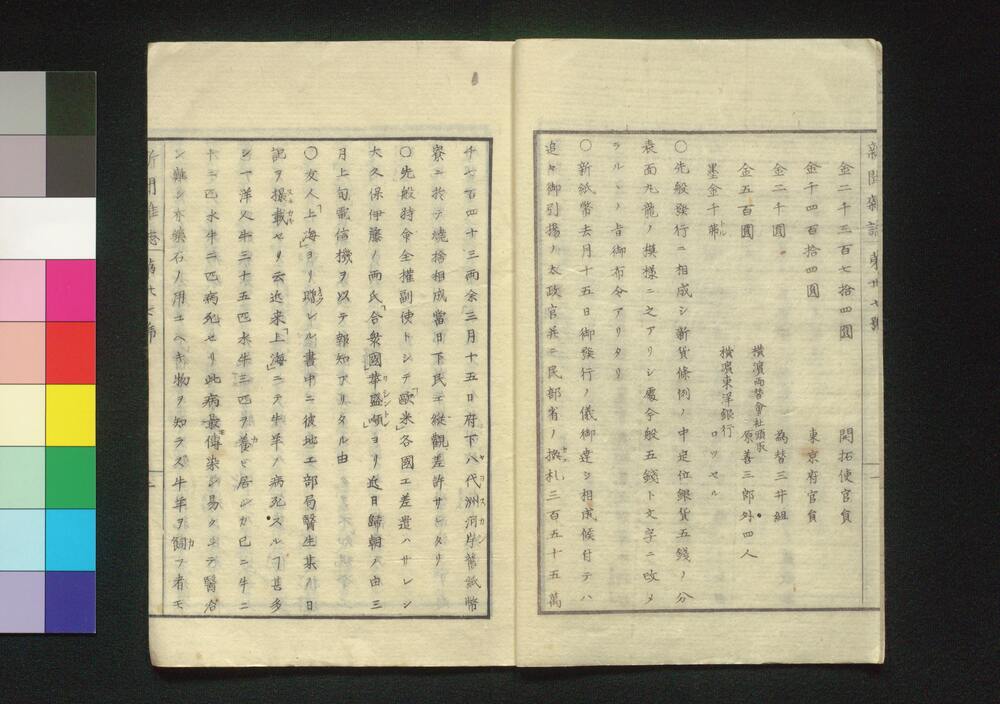 新聞雜誌 第廿七號
金二千三百七拾四圓 開拓使官員
金千四百拾四圓 東京府官員
金二千圓 為替三井組
金五百圓 橫濱両替會社頭取 原善三郎外四人
墨金千弗 橫濱東洋銀行 ロツセル
〇先般發行ニ相成シ新貨條例ノ中定位銀貨五錢ノ分
表面九龍ノ模樣ニ之アリシ處今般五錢ト文字ニ改メ
ラルヽノ旨御布令アリタリ
〇新紙幣去月十五日御發行ノ儀御達シ相成候付テハ
追々御引揚ノ太政官並ニ民部省ノ楮札三百五十五萬
千七百四十三兩余三月十五日府下八代洲河岸舊紙幣
寮ニ於テ燒捨相成當日下民エ縱觀差許サレタリ
〇先般特命全權副使トシテ歐米各國エ差遣ハサレシ
大久保伊藤ノ兩氏合衆國華盛頓ヨリ近日歸朝ノ由三
月上旬電信機ヲ以テ報知アリタル由
〇友人上海ヨリ贈レル書中ニ彼地工部局醫生某ハ日
記ヲ撮載セリ云近来上海ニテ牛羊ノ病死スルヿ甚多
シ一洋人牛三十五匹水牛三匹ヲ養ヒ居シガ已ニ牛二
十二匹水牛二匹病死セリ此病最傳染シ易クシテ醫治
シ難シ亦藥石ノ用ユヘキ物ヲ知ラス牛羊ヲ飼フ者モ
新聞雜誌 第廿七號